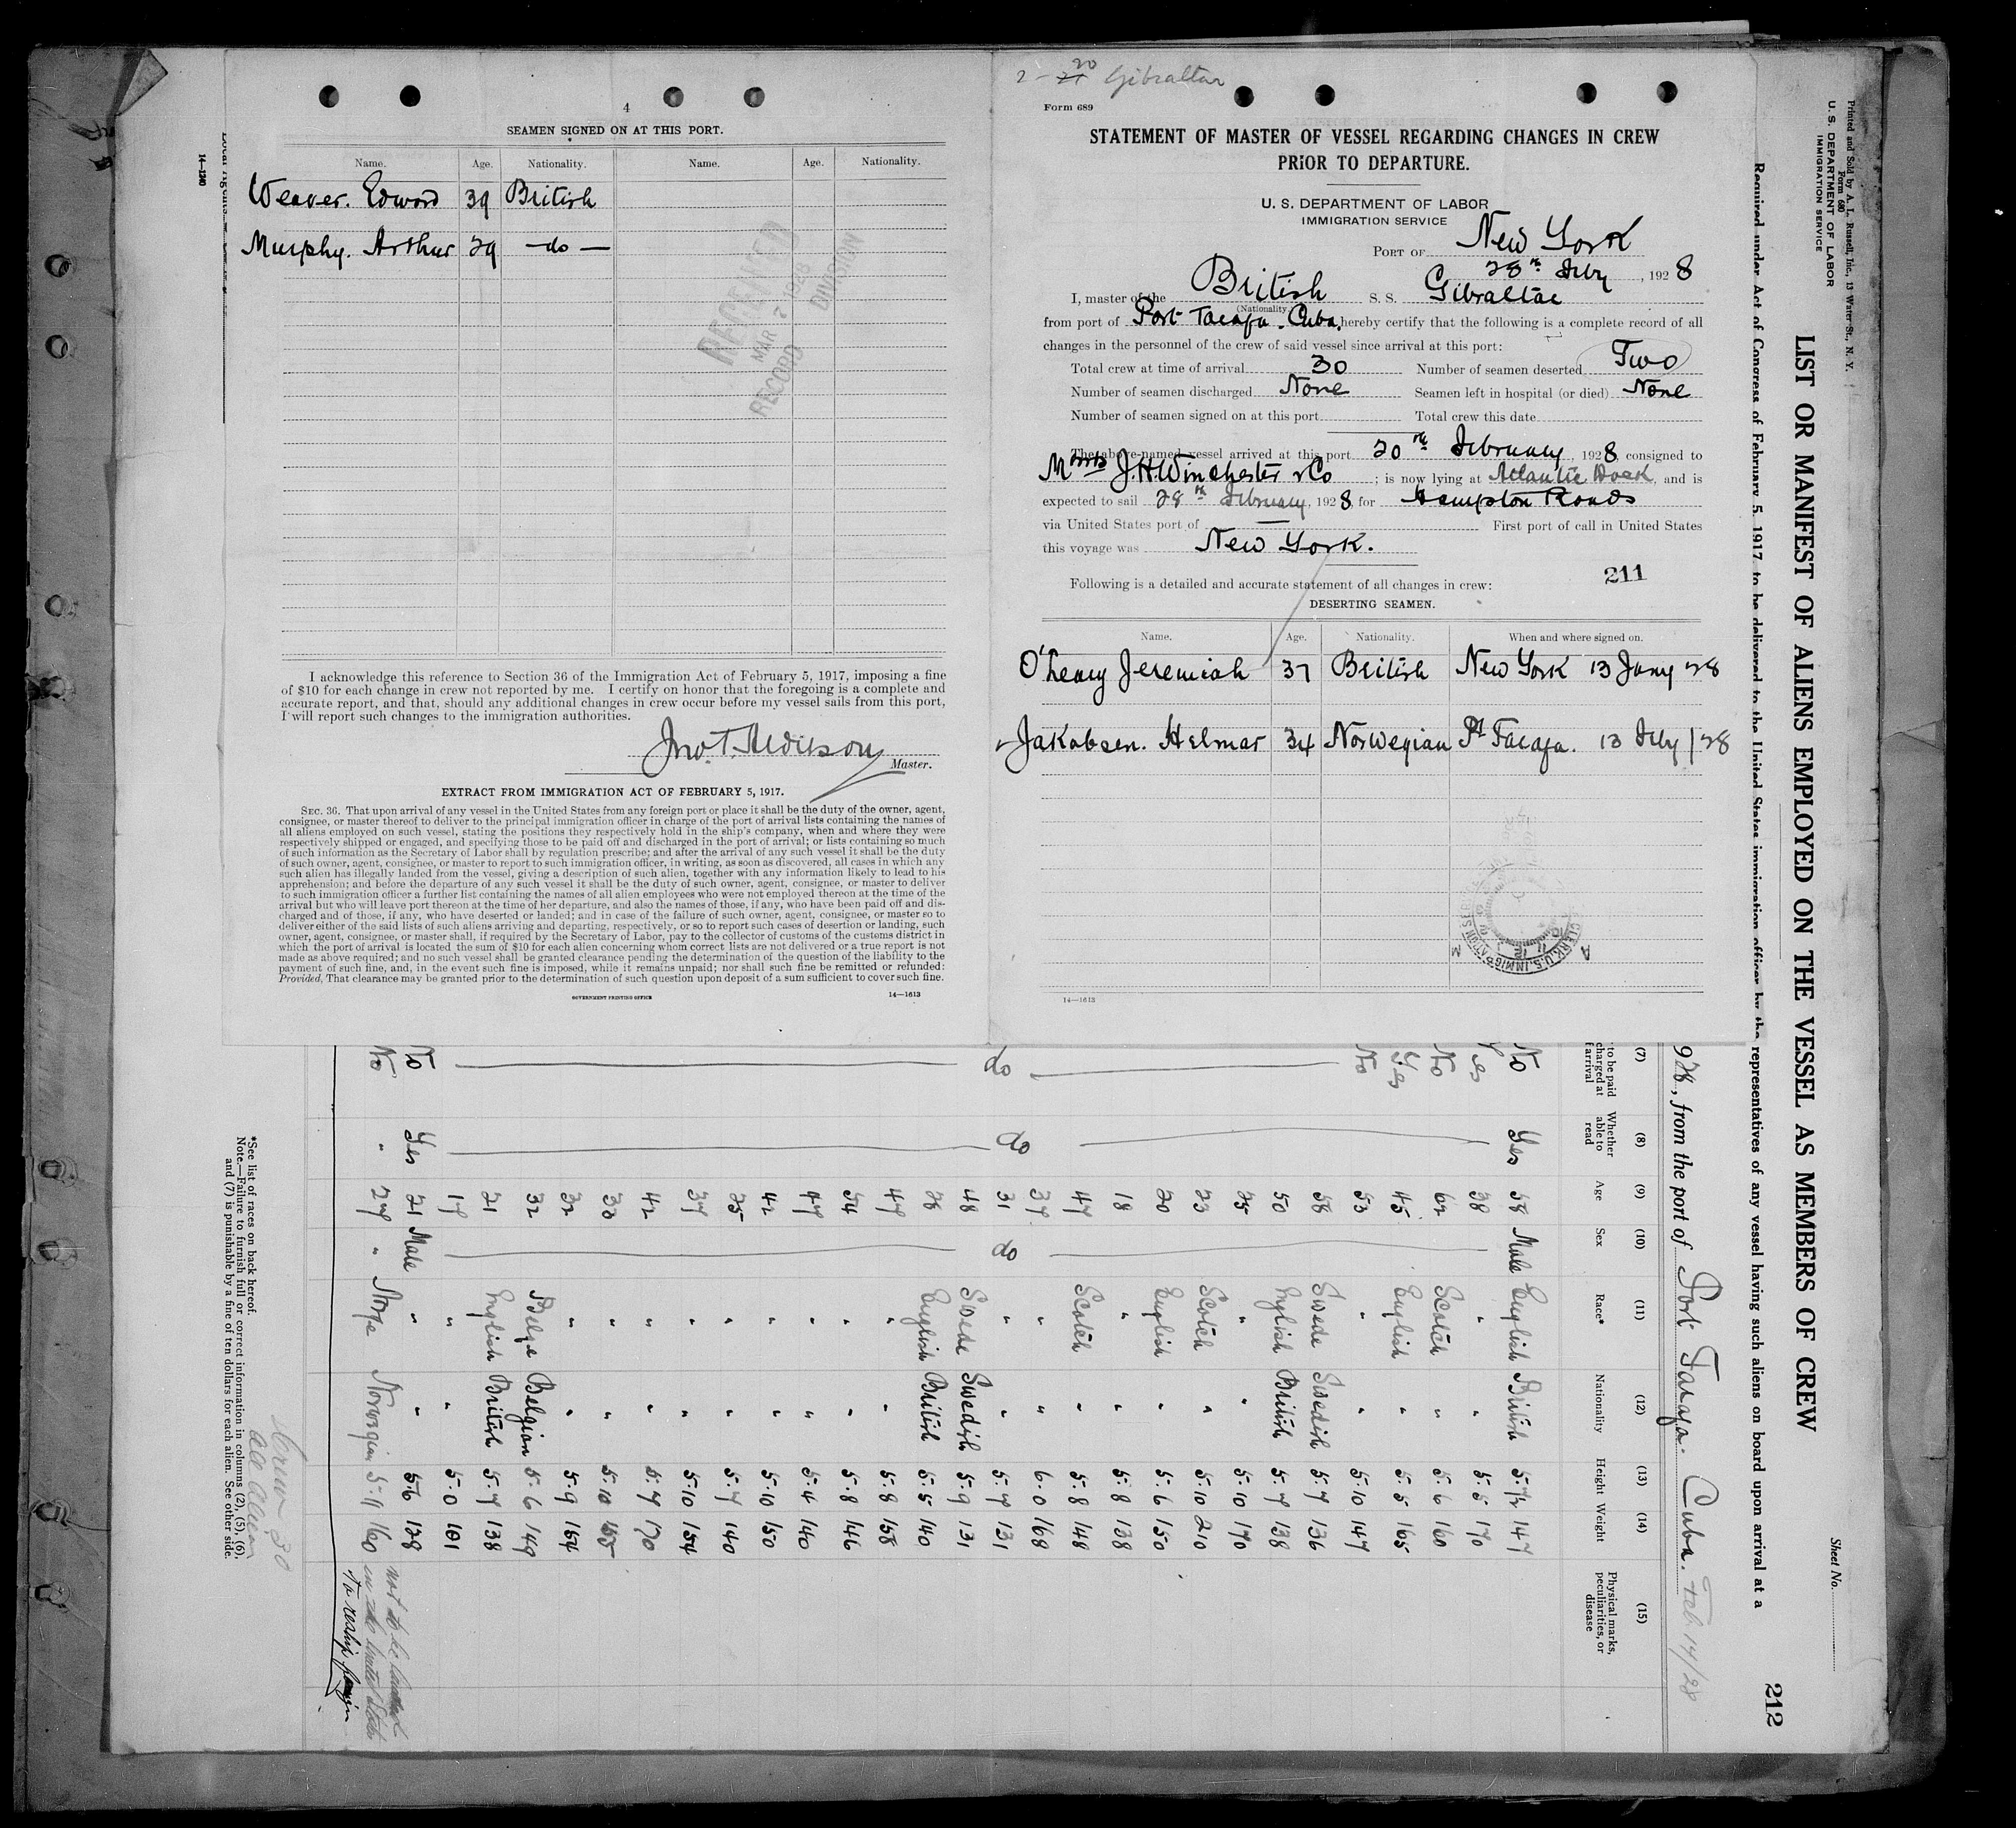 4
SEAMEN SIGNED ON AT THIS PORT.
Name. Age. Nationality. Name. Age. Nationality.
Weaver. Edward 39 British
Murphy. Arthur 29 — do —
RECEIVED
MAR 2 1928
RECORD DIVISION
I acknowledge this reference to Section 36 of the Immigration Act of February 5, 1917, imposing a fine
of $10 for each change in crew not reported by me. I certify on honor that the foregoing is a complete and
accurate report, and that, should any additional changes in crew occur before my vessel sails from this port,
I will report such changes to the immigration authorities.
Jno. T.
Master.
EXTRACT FROM IMMIGRATION ACT OF FEBRUARY 5, 1917.
SEC. 36. That upon arrival of any vessel in the United States from any foreign port or place it shall be the duty of the owner, agent,
consignee, or master thereof to deliver to the principal immigration officer in charge of the port of arrival lists containing the names of
all aliens employed on such vessel, stating the positions they respectively hold in the ship's company, when and where they were
respectively shipped or engaged, and specifying those to be paid off and discharged in the port of arrival; or lists containing so much
of such information as the Secretary of Labor shall by regulation prescribe; and after the arrival of any such vessel it shall be the duty
of such owner, agent, consignee, or master to report to such immigration officer, in writing, as soon as discovered, all cases in which any
such alien has illegally landed from the vessel, giving a description of such alien, together with any information likely to lead to his
apprehension; and before the departure of any such vessel it shall be the duty of such owner, agent, consignee, or master to deliver
to such immigration officer a further list containing the names of all alien employees who were not employed thereon at the time of the
arrival but who will leave port thereon at the time of her departure, and also the names of those, if any, who have been paid off and dis-
charged and of those, if any, who have deserted or landed; and in case of the failure of such owner, agent, consignee, or master so to
deliver either of the said lists of such aliens arriving and departing, respectively, or so to report such cases of desertion or landing, such
owner, agent, consignee, or master shall, if required by the Secretary of Labor, pay to the collector of customs of the customs district in
which the port of arrival is located the sum of $10 for each alien concerning whom correct lists are not delivered or a true report is not
made as above required; and no such vessel shall be granted clearance pending the determination of the question of the liability to the
payment of such fine, and, in the event such fine is imposed, while it remains unpaid; nor shall such fine be remitted or refunded:
Provided, That clearance may be granted prior to the determination of such question upon deposit of a sum sufficient to cover such fine.
GOVERNMENT PRINTING OFFICE 14—1613
2 - 20 Gibraltar
Form 689
STATEMENT OF MASTER OF VESSEL REGARDING CHANGES IN CREW
PRIOR TO DEPARTURE.
U. S. DEPARTMENT OF LABOR
IMMIGRATION SERVICE
PORT OF New York
28th Feby, 1928
I, master of the British S. S. Gibraltar
(Nationality)
from port of Port Tacafa. Cuba, hereby certify that the following is a complete record of all
changes in the personnel of the crew of said vessel since arrival at this port:
Total crew at time of arrival 30 Number of seamen deserted Two
Number of seamen discharged None Seamen left in hospital (or died) None
Number of seamen signed on at this port Total crew this date
The above-named vessel arrived at this port 20th February, 1928, consigned to
Messrs J.H Winchester & Co; is now lying at Atlantic Dock, and is
expected to sail 28th February, 1928, for Hampton Roads
via United States port of — First port of call in United States
this voyage was New York.
Following is a detailed and accurate statement of all changes in crew: 211
DESERTING SEAMEN.
Name. Age. Nationality. When and where signed on.
O'Leary Jeremiah 37 British New York 13 Jany 28
Jakobsen. Helmar 34 Norwegian Pt Tacafa. 13 Feby /28
CLERK, U.S. IMMIGRATION SERVICE
A M
14—1613
Printed and Sold by A. L. Russell, Inc., 13 Water St., N. Y.
Form 680
U. S. DEPARTMENT OF LABOR
IMMIGRATION SERVICE
Sheet No.
LIST OR MANIFEST OF ALIENS EMPLOYED ON THE VESSEL AS MEMBERS OF CREW
212
Required under Act of Congress of February 5, 1917, to be delivered to the United States immigration officer by the representatives of any vessel having such aliens on board upon arrival at a
928, from the port of Port Tacafa. Cuba. Feb 14/28
(7) (8) (9) (10) (11) (12) (13) (14) (15)
to be paid charged at arrival Whether able to read Age Sex Race* Nationality Height Weight Physical marks, peculiarities, or disease
No Yes 58 Male English British 5.7½ 147
Yes 38 " " 5.5 170
No 62 Scotch " 5.6 160
Yes 45 English " 5.5 165
No 53 " " 5.10 147
58 Swede Swedish 5.7 136
50 English British 5.7 138
25 " " 5.10 170
23 Scotch " 5.10 210
20 English " 5.6 150
18 " " 5.8 138
47 Scotch " 5.8 148
37 " " 6.0 168
do do 31 do " " 5.7 131
48 Swede Swedish 5.9 131
28 English British 5.5 140
47 " " 5.8 158
54 " " 5.8 146
47 " " 5.4 140
42 " " 5.10 150
25 " " 5.7 140
37 " " 5.10 154
42 " " 5.7 170
33 " " 5.10 155
32 " " 5.9 154
32 Belge Belgian 5.6 149
21 English British 5.7 138
17 " " 5.0 101
No Yes 21 Male " " 5.6 128
No " 27 " Norge Norwegian 5.11 160
not to be landed
in the United States
to reship foreign
*See list of races on back hereof.
Note.—Failure to furnish full or correct information in columns (2), (5), (6),
and (7) is punishable by a fine of ten dollars for each alien. See other side.
Crew 30
all alien
14—1240